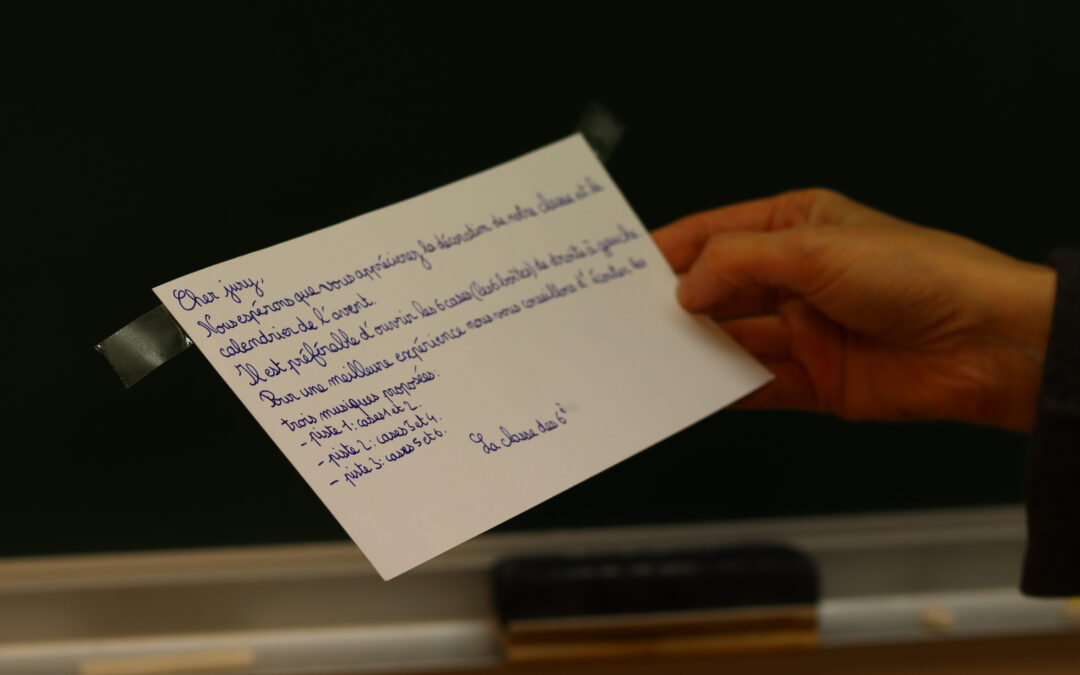 Cher jury,
Nous espérons que vous apprécierez la décoration de notre classe et le
calendrier de l'avent.
Il est préférable d'ouvrir les 6 cases (les 6 boîtes) de droite à gauche
Pour une meilleure expérience nous vous conseillons d'écouter les
trois musiques proposées:
- piste 1: cases 1 et 2.
- piste 2: cases 3 et 4.
- piste 3: cases 5 et 6.
La classe des 6è